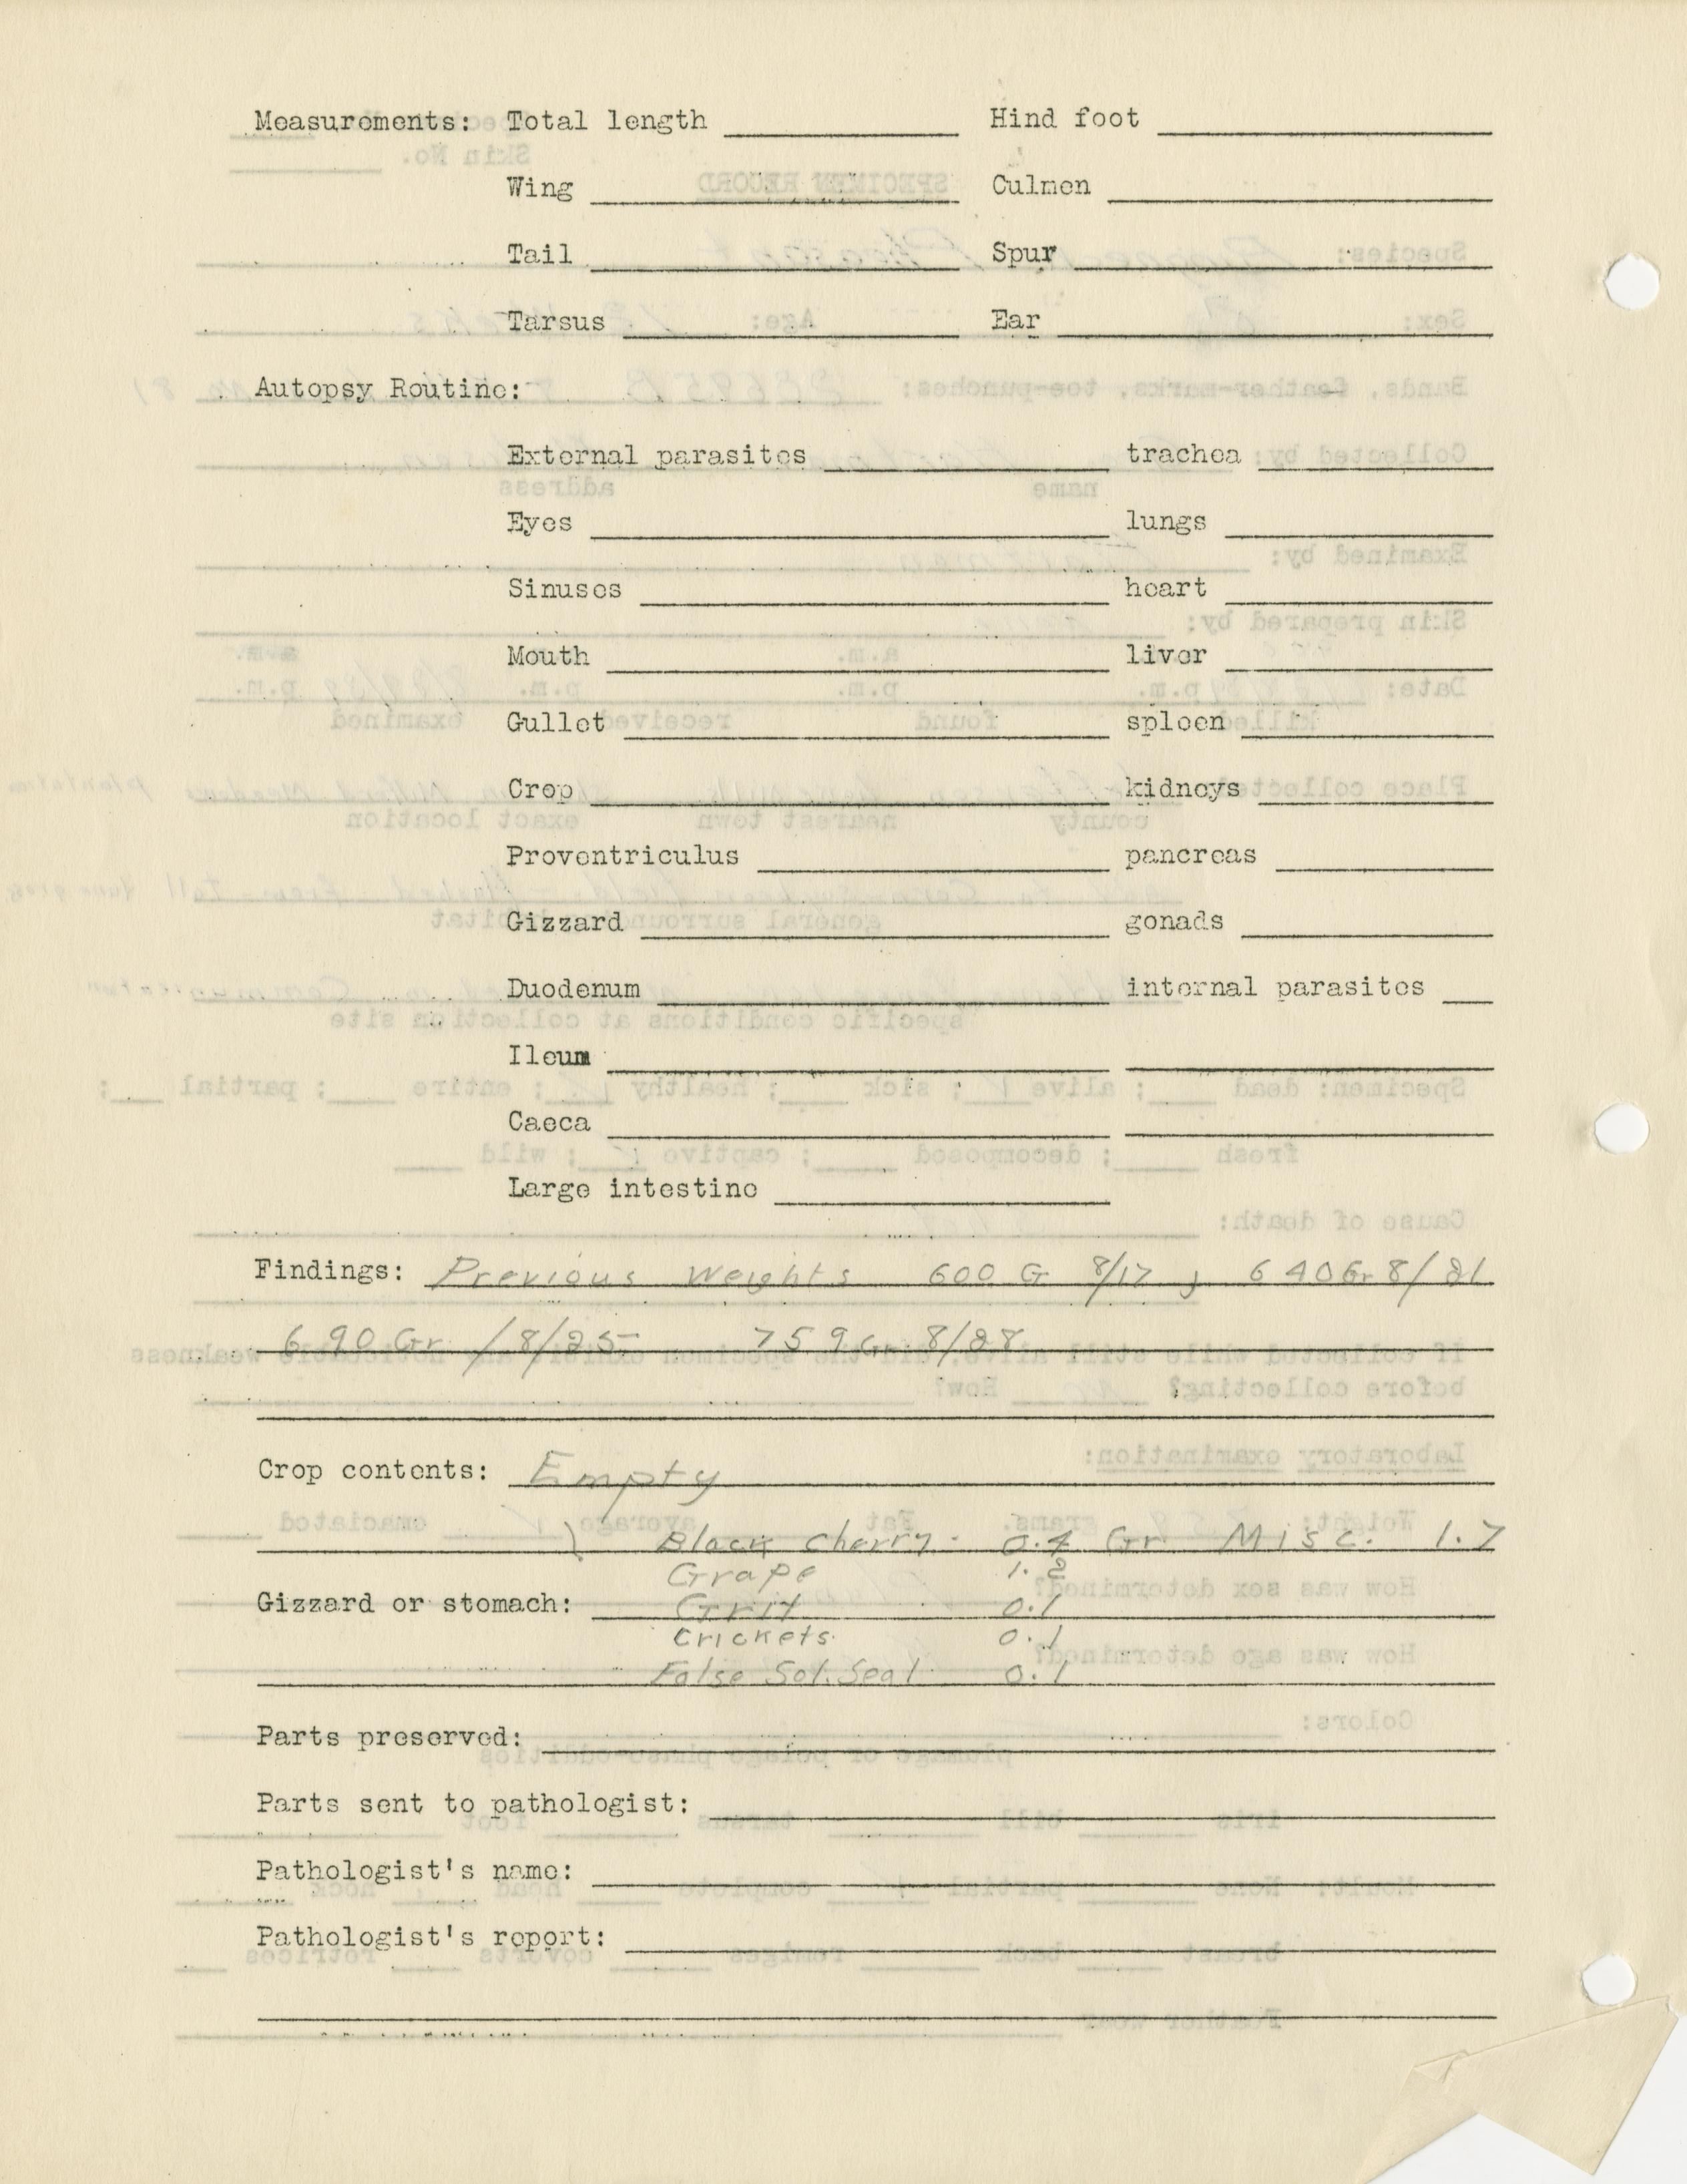 Measurements: Total length Hind foot
Wing Culmen
Tail Spur
Tarsus Ear
Autopsy Routine:
External parasites trachea
Eyes lungs
Sinuses heart
Mouth liver
Gullet spleen
Crop kidneys
Proventriculus pancreas
Gizzard gonads
Duodenum internal parasites
Ileum
Caeca
Large intestine
Findings: Previous Weights 600 G 8/17 , 640 Gr 8/21
690 Gr / 8/25 759 Gr 8/28
Crop contents: Empty
Black Cherry 0.4 Gr Misc. 1.7
Grape 1.2
Gizzard or stomach: Grit 0.1
Crickets 0.1
False Sol. Seal 0.1
Parts preserved:
Parts sent to pathologist:
Pathologist's name:
Pathologist's report: